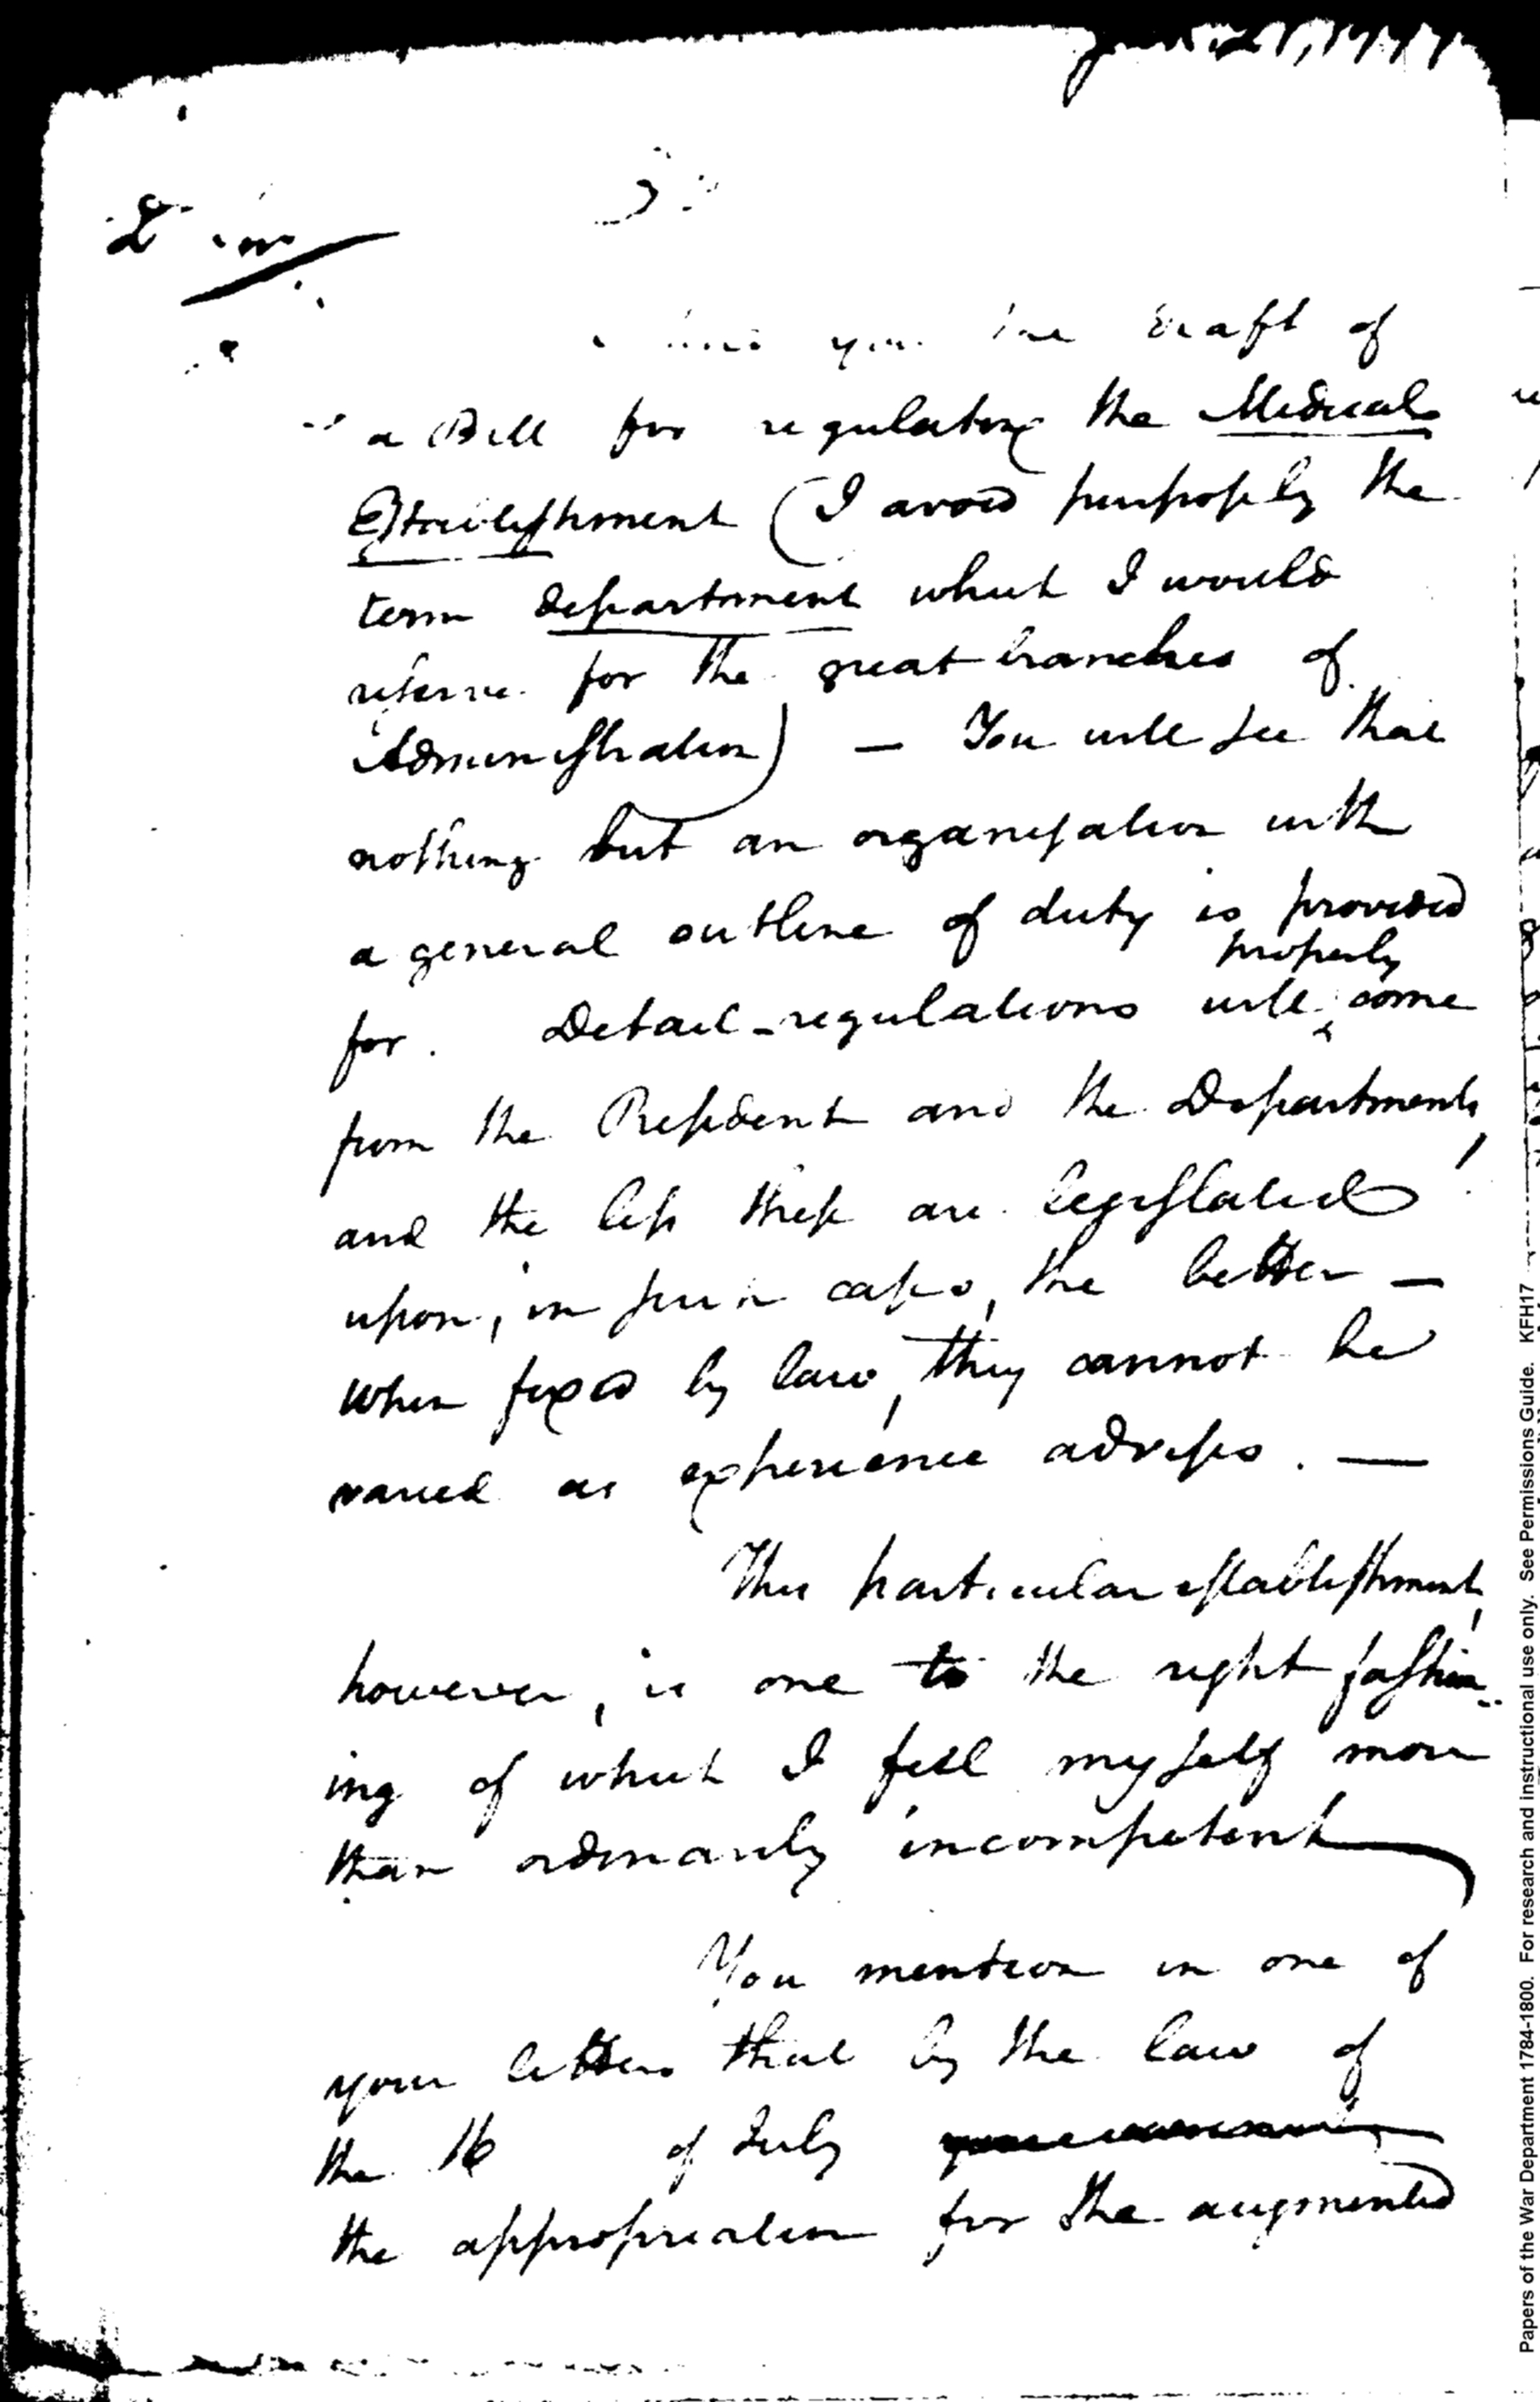 you the draft of
a Bill for regulating the Medical
Establishment (I avoid purposely the
term department which I would
reserve for the great branches of
Administration) — You will see that
nothing but an organisation with
a general outline of duty is provided
properly
for. Detail-regulations will ‸ come
from the President and the Departments,
and the less these are legislated
upon, in such cases, the better —
When fixed by law, they cannot be
varied as experience advises. —
This particular establishment,
however, is one to the right fashion-
ing of which I feel myself more
than ordinarily incompetent
You mention in one of
your letters that by the law of
the 16 of July
the appropriation for the augmented
Papers of the War Department 1784-1800. For research and instructional use only. See Permissions Guide. KFH17